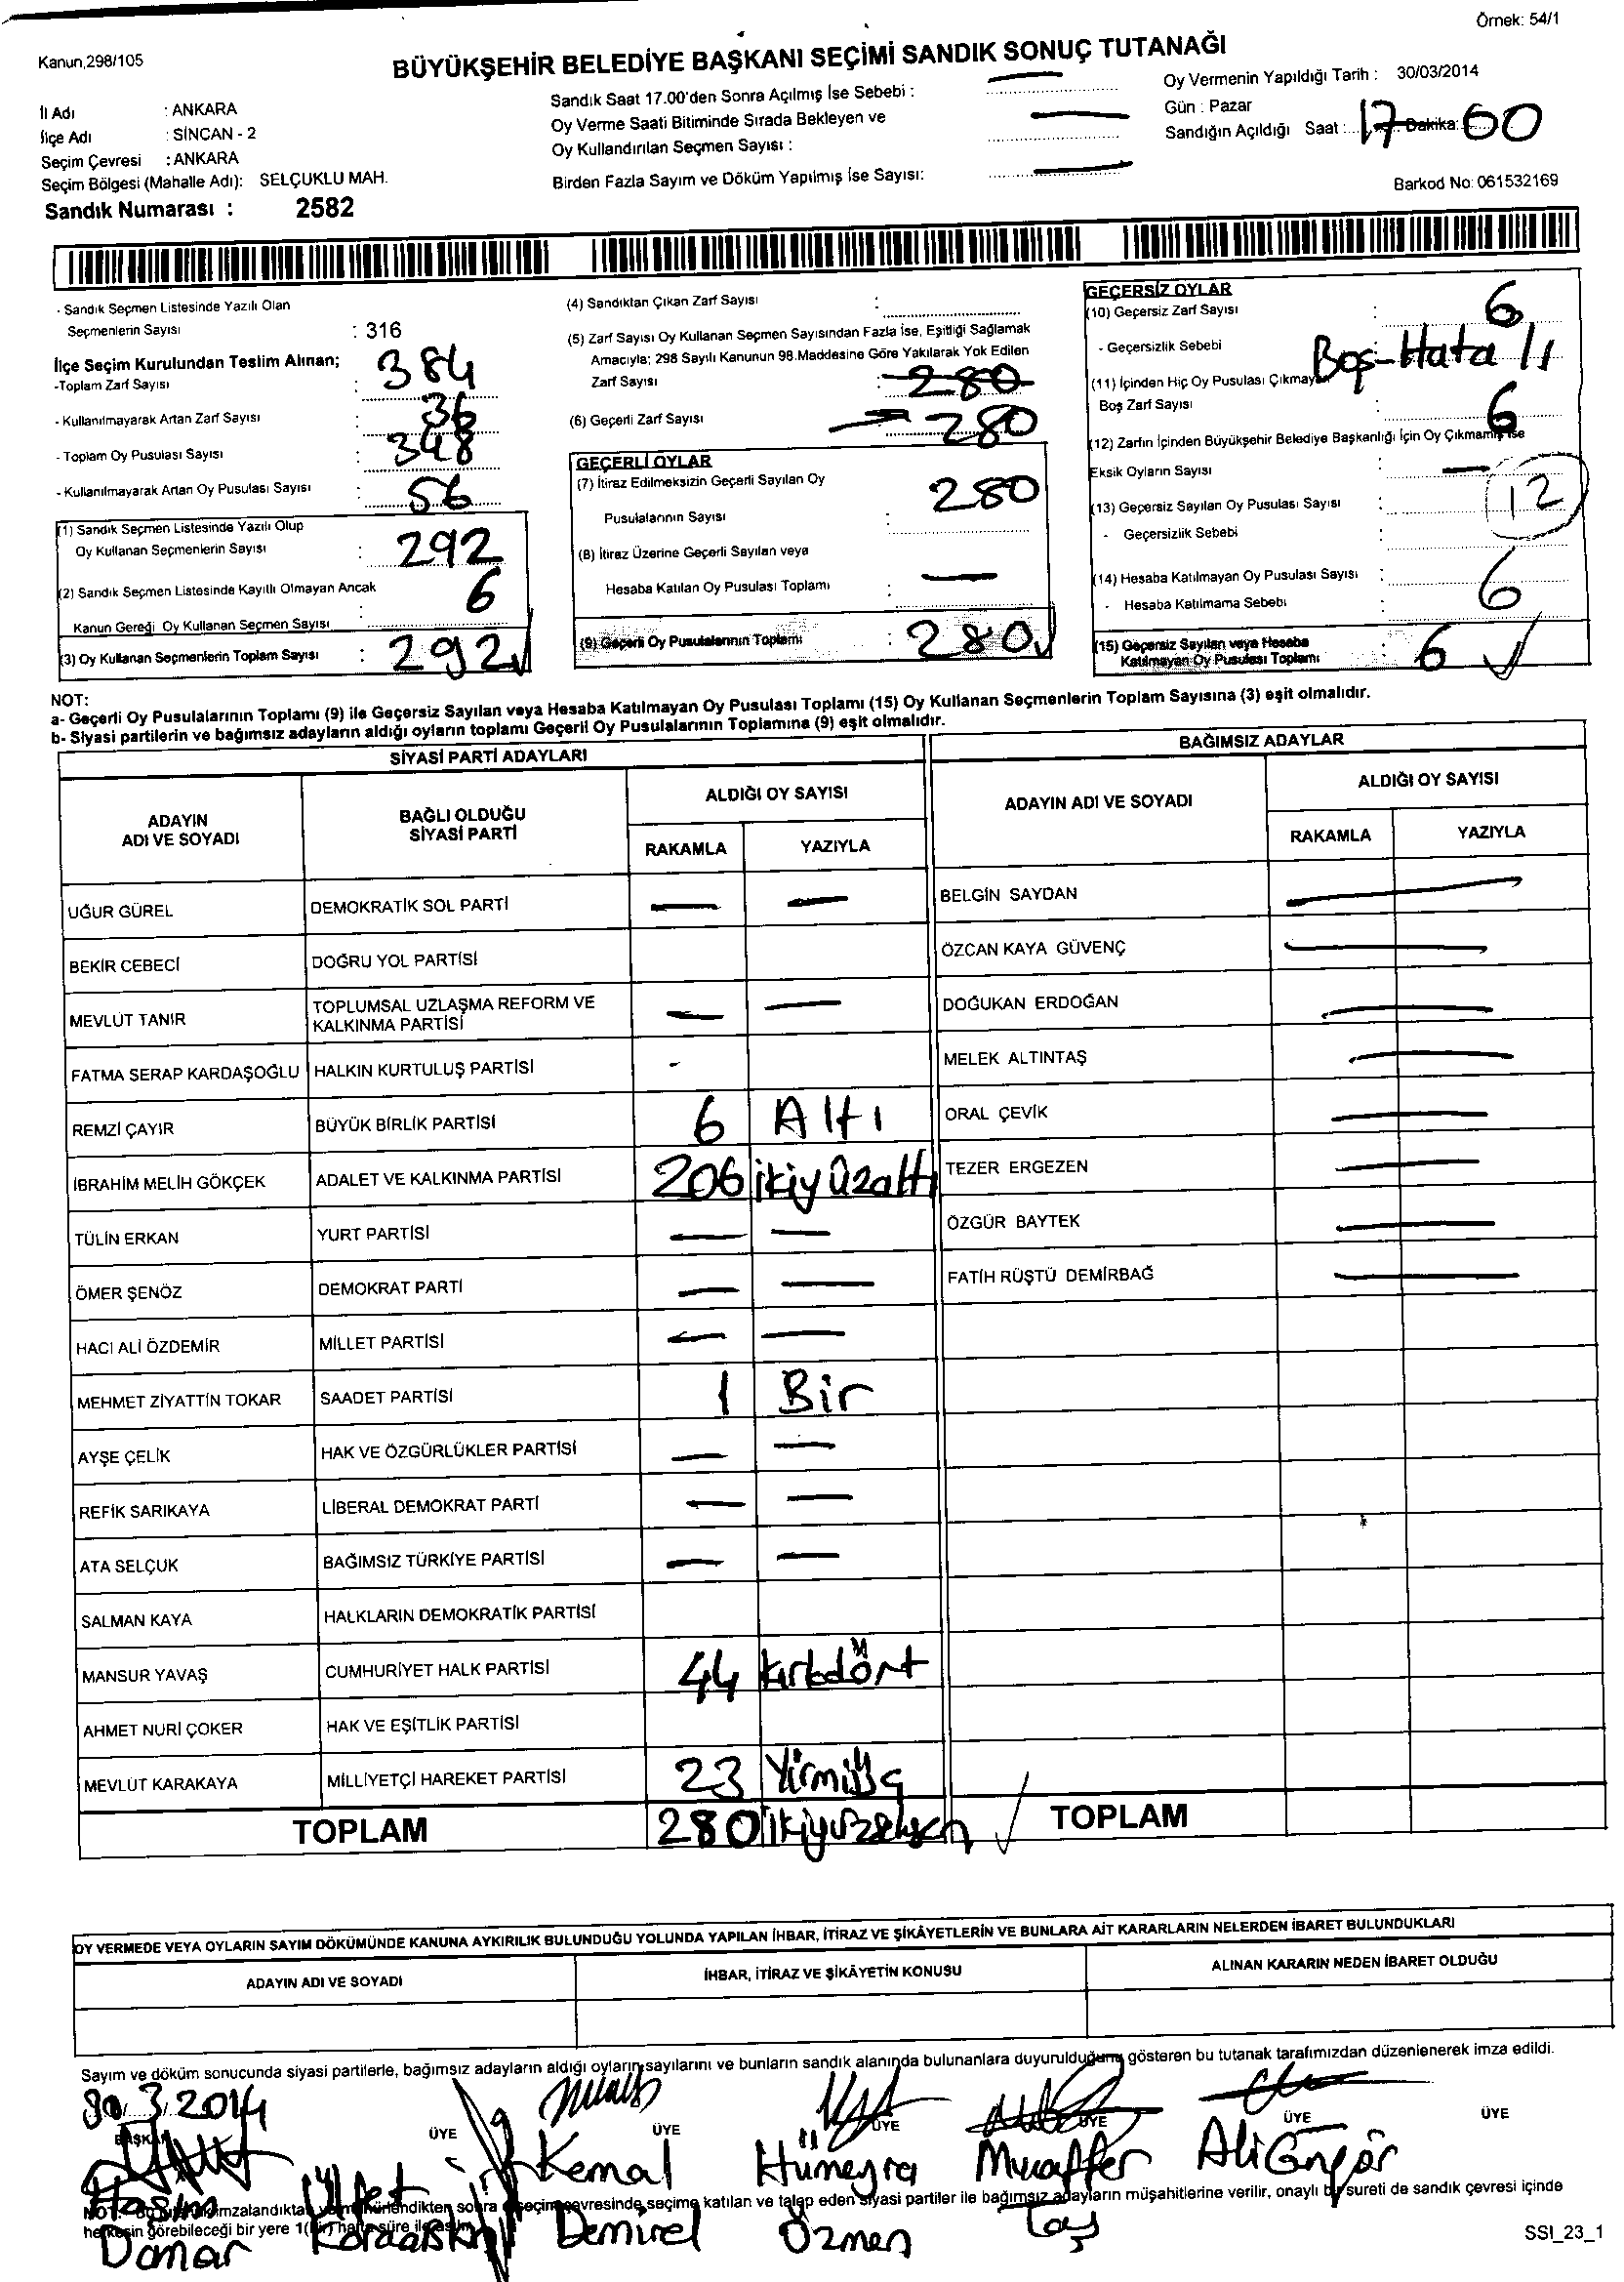 Örnek: 54/1
Kanun,298/105
BÜYÜKŞEHİR BELEDİYE BAŞKANI SEÇİMİ SANDIK SONUÇ TUTANAĞI
İl Adı : ANKARA
İlçe Adı : SİNCAN - 2
Seçim Çevresi : ANKARA
Seçim Bölgesi (Mahalle Adı): SELÇUKLU MAH.
Sandık Numarası : 2582
Sandık Saat 17.00'den Sonra Açılmış İse Sebebi : —
Oy Verme Saati Bitiminde Sırada Bekleyen ve
Oy Kullandırılan Seçmen Sayısı : —
Birden Fazla Sayım ve Döküm Yapılmış İse Sayısı: —
Oy Vermenin Yapıldığı Tarih : 30/03/2014
Gün : Pazar
Sandığın Açıldığı Saat : 17 Dakika: 00
Barkod No: 061532169
- Sandık Seçmen Listesinde Yazılı Olan
Seçmenlerin Sayısı : 316
İlçe Seçim Kurulundan Teslim Alınan;
-Toplam Zarf Sayısı : 384
- Kullanılmayarak Artan Zarf Sayısı : 36
- Toplam Oy Pusulası Sayısı : 348
- Kullanılmayarak Artan Oy Pusulası Sayısı : 56
(1) Sandık Seçmen Listesinde Yazılı Olup
Oy Kullanan Seçmenlerin Sayısı : 292
(2) Sandık Seçmen Listesinde Kayıtlı Olmayan Ancak
Kanun Gereği Oy Kullanan Seçmen Sayısı 6
(3) Oy Kullanan Seçmenlerin Toplam Sayısı : 292
(4) Sandıktan Çıkan Zarf Sayısı :
(5) Zarf Sayısı Oy Kullanan Seçmen Sayısından Fazla İse, Eşitliği Sağlamak
Amacıyla; 298 Sayılı Kanunun 98.Maddesine Göre Yakılarak Yok Edilen
Zarf Sayısı : 280
(6) Geçerli Zarf Sayısı 280
GEÇERLİ OYLAR
(7) İtiraz Edilmeksizin Geçerli Sayılan Oy
Pusulalarının Sayısı : 280
(8) İtiraz Üzerine Geçerli Sayılan veya
Hesaba Katılan Oy Pusulası Toplamı : —
(9) Geçerli Oy Pusulalarının Toplamı : 280
GEÇERSİZ OYLAR
(10) Geçersiz Zarf Sayısı : 6
- Geçersizlik Sebebi : Boş-Hatalı
(11) İçinden Hiç Oy Pusulası Çıkmayan
Boş Zarf Sayısı : 6
(12) Zarfın İçinden Büyükşehir Belediye Başkanlığı İçin Oy Çıkmamış ise
Eksik Oyların Sayısı : —
(13) Geçersiz Sayılan Oy Pusulası Sayısı : 12
- Geçersizlik Sebebi :
(14) Hesaba Katılmayan Oy Pusulası Sayısı : 6
- Hesaba Katılmama Sebebi :
(15) Geçersiz Sayılan veya Hesaba
Katılmayan Oy Pusulası Toplamı : 6
NOT:
a- Geçerli Oy Pusulalarının Toplamı (9) ile Geçersiz Sayılan veya Hesaba Katılmayan Oy Pusulası Toplamı (15) Oy Kullanan Seçmenlerin Toplam Sayısına (3) eşit olmalıdır.
b- Siyasi partilerin ve bağımsız adayların aldığı oyların toplamı Geçerli Oy Pusulalarının Toplamına (9) eşit olmalıdır.
SİYASİ PARTİ ADAYLARI
ADAYIN ADI VE SOYADI
BAĞLI OLDUĞU SİYASİ PARTİ
ALDIĞI OY SAYISI
RAKAMLA YAZIYLA
UĞUR GÜREL DEMOKRATİK SOL PARTİ — —
BEKİR CEBECİ DOĞRU YOL PARTİSİ
MEVLÜT TANIR TOPLUMSAL UZLAŞMA REFORM VE KALKINMA PARTİSİ — —
FATMA SERAP KARDAŞOĞLU HALKIN KURTULUŞ PARTİSİ -
REMZİ ÇAYIR BÜYÜK BİRLİK PARTİSİ 6 Altı
İBRAHİM MELİH GÖKÇEK ADALET VE KALKINMA PARTİSİ 206 ikiyüzaltı
TÜLİN ERKAN YURT PARTİSİ — —
ÖMER ŞENÖZ DEMOKRAT PARTİ — —
HACI ALİ ÖZDEMİR MİLLET PARTİSİ — —
MEHMET ZİYATTİN TOKAR SAADET PARTİSİ 1 Bir
AYŞE ÇELİK HAK VE ÖZGÜRLÜKLER PARTİSİ — —
REFİK SARIKAYA LİBERAL DEMOKRAT PARTİ — —
ATA SELÇUK BAĞIMSIZ TÜRKİYE PARTİSİ — —
SALMAN KAYA HALKLARIN DEMOKRATİK PARTİSİ
MANSUR YAVAŞ CUMHURİYET HALK PARTİSİ 44 kırkdört
AHMET NURİ ÇOKER HAK VE EŞİTLİK PARTİSİ
MEVLÜT KARAKAYA MİLLİYETÇİ HAREKET PARTİSİ 23 Yirmiüç
TOPLAM 280 ikiyüzseksen
BAĞIMSIZ ADAYLAR
ADAYIN ADI VE SOYADI
ALDIĞI OY SAYISI
RAKAMLA YAZIYLA
BELGİN SAYDAN —
ÖZCAN KAYA GÜVENÇ —
DOĞUKAN ERDOĞAN —
MELEK ALTINTAŞ —
ORAL ÇEVİK —
TEZER ERGEZEN —
ÖZGÜR BAYTEK —
FATİH RÜŞTÜ DEMİRBAĞ —
TOPLAM
OY VERMEDE VEYA OYLARIN SAYIM DÖKÜMÜNDE KANUNA AYKIRILIK BULUNDUĞU YOLUNDA YAPILAN İHBAR, İTİRAZ VE ŞİKÂYETLERİN VE BUNLARA AİT KARARLARIN NELERDEN İBARET BULUNDUKLARI
ADAYIN ADI VE SOYADI
İHBAR, İTİRAZ VE ŞİKÂYETİN KONUSU
ALINAN KARARIN NEDEN İBARET OLDUĞU
Sayım ve döküm sonucunda siyasi partilerle, bağımsız adayların aldığı oyların sayılarını ve bunların sandık alanında bulunanlara duyurulduğunu gösteren bu tutanak tarafımızdan düzenlenerek imza edildi.
30/3/2014
BAŞKAN ÜYE ÜYE ÜYE ÜYE ÜYE ÜYE
Haşim Ülfet Kemal Hümeyra Muaffer Ali Güngör
Damar Demirel Özmen Taş
NOT: Bu tutanak imzalandıktan ve mühürlendikten sonra seçim çevresinde seçime katılan ve talep eden siyasi partiler ile bağımsız adayların müşahitlerine verilir, onaylı bir sureti de sandık çevresi içinde
herkesin görebileceği bir yere 1(bir) hafta süre ile asılır.
SSI_23_1